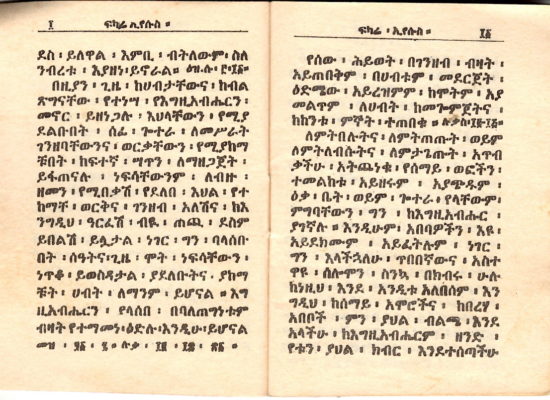 ፲ ፍካሬ ኢየሱስ ።
ደስ ፡ ይለዋል ፡ እምቢ ፡ ብትለውም ፡ ስለ
ንብረቱ ፡ እያዘነ ፡ ይኖራል ።
በዚያን ፡ ጊዜ ፡ ከሀብታቸውና ፡ ከብል
ጽግናቸው ፡ የተነሣ ፡ የእግዚአብሔርን ፡
መኖር ፡ ይዘነጋሉ ፡ እህላቸውን ፡ የሚያ
ደልቡበት ፡ ሰፊ ፡ ጐተራ ፡ ለመሥራት
ገንዘባቸውንና ፡ ወርቃቸውን ፡ የሚያከማ
ቹበት ፡ ከፍተኛ ፡ ሣጥን ፡ ለማዘጋጀት ፡
ይፋጠናሉ ፡ ነፍሳቸውንም ፡ ለብዙ ፡
ዘመን ፡ የሚበቃሽ ፡ የደለበ ፡ እህል ፡ የተ
ከማቸ ፡ ወርቅና ፡ ገንዘብ ፡ አለሽና ፡ ከእ
ንግዲህ ፡ ዓርፈሽ ፡ ብዪ ፡ ጠጪ ፡ ደስም
ይበልሽ ፡ ይሏታል ፡ ነገር ፡ ግን ፡ ባላሰቡ
በት ፡ ሰዓትና ፡ ጊዜ ፡ ሞት ፡ ነፍሳቸውን ፡
ነጥቆ ፡ ይወስዳታል ፡ ያደለቡትና ፡ ያከማ
ቹት ፡ ሀብት ፡ ለማንም ፡ ይሆናል ። እግ
ዚአብሔርን ፡ የላሰበ ፡ በባለጠግነቱም
ብዛት የተማመነ ፡ ዕድሉ ፡ እንዲሁ ፡ ይሆናል
ፍካሬ ፡ ኢየሱስ ። ፲፩
የሰው ፡ ሕይወት ፡ በገንዘብ ፡ ብዛት ፡
አይጠበቅም ፡ በሀብቱም ፡ መደርጀት ፡
ዕድሜው ፡ አይረዝምም ፡ ከሞትም ፡ አያ
መልጥም ፡ ለሀብት ፡ ከመጐምጀትና ፡
ከከንቱ ፡ ምኞት ፡ ተጠበቁ ።
ለምትበሉትና ፡ ለምትጠጡት ፡ ወይም
ለምትለብሱትና ፡ ለምታጌጡት ፡ አጥብ
ቃችሁ ፡ አትጨነቁ ፡ የሰማይ ፡ ወፎችን ፡
ተመልከቱ ፡ አይዘሩም ፡ አያጭዱም ፡
ዕቃ ፡ ቤት ፡ ወይም ፡ ጐተራ ፡ የላቸውም ፡
ምግባቸውን ፡ ግን ፡ ከእግዚአብሔር
ያገኛሉ ። እንዲሁም ፡ አበባዎችን ፡ እዩ ፡
አይደክሙም ፡ አይፈትሉም ፡ ነገር ፡
ግን ፡ እላችኋለሁ ፡ ጥበበኛውና ፡ አስተ
ዋዩ ፡ ሰሎሞን ፡ ስንኳ ፡ በክብሩ ፡ ሁሉ ፡
ከነዚህ ፡ እንደ ፡ አንዲቱ ፡ አለበሰም ፡ እን
ግዲህ ፡ ከሰማይ ፡ አሞሮችና ፡ ከበረሃ ፡
አበቦች ፡ ምን ፡ ያህል ፡ ብልጫ ፡ እንደ
አላችሁ ፡ ከእግዚአብሔርም ፡ ዘንድ ፡
የቱን ፡ ያህል ፡ ክብር ፡ እንደተሰጣችሁ